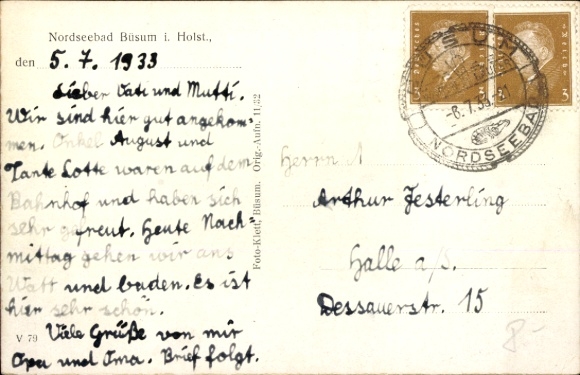 Nordseebad Büsum i. Holst.,
den 5. 7. 1933
Lieber Vati und Mutti.
Wir sind hier gut angekom-
men. Onkel August und
Tante Lotte waren auf dem
Bahnhof und haben sich
sehr gefreut. Heute Nach-
mittag gehen wir ans
Watt und baden. Es ist
hier sehr schön.
Viele Grüße von mir
Opa und Oma. Brief folgt.
V 79
Foto-Klett, Büsum. Orig.-Aufn. 11/32
BÜSUM
-6.7.33.
NORDSEEBAD
3 3
Herrn
Arthur Jesterling
Halle a/S.
Dessauerstr. 15
8.-